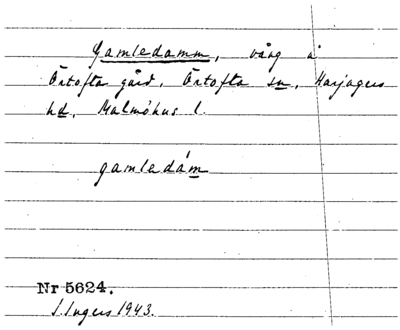 Gamledamm, vång å
Örtofta gård, Örtofta sn, Harjagers
hd, Malmöhus l.
gamledám
Nr 5624.
I. Ingers 1943.